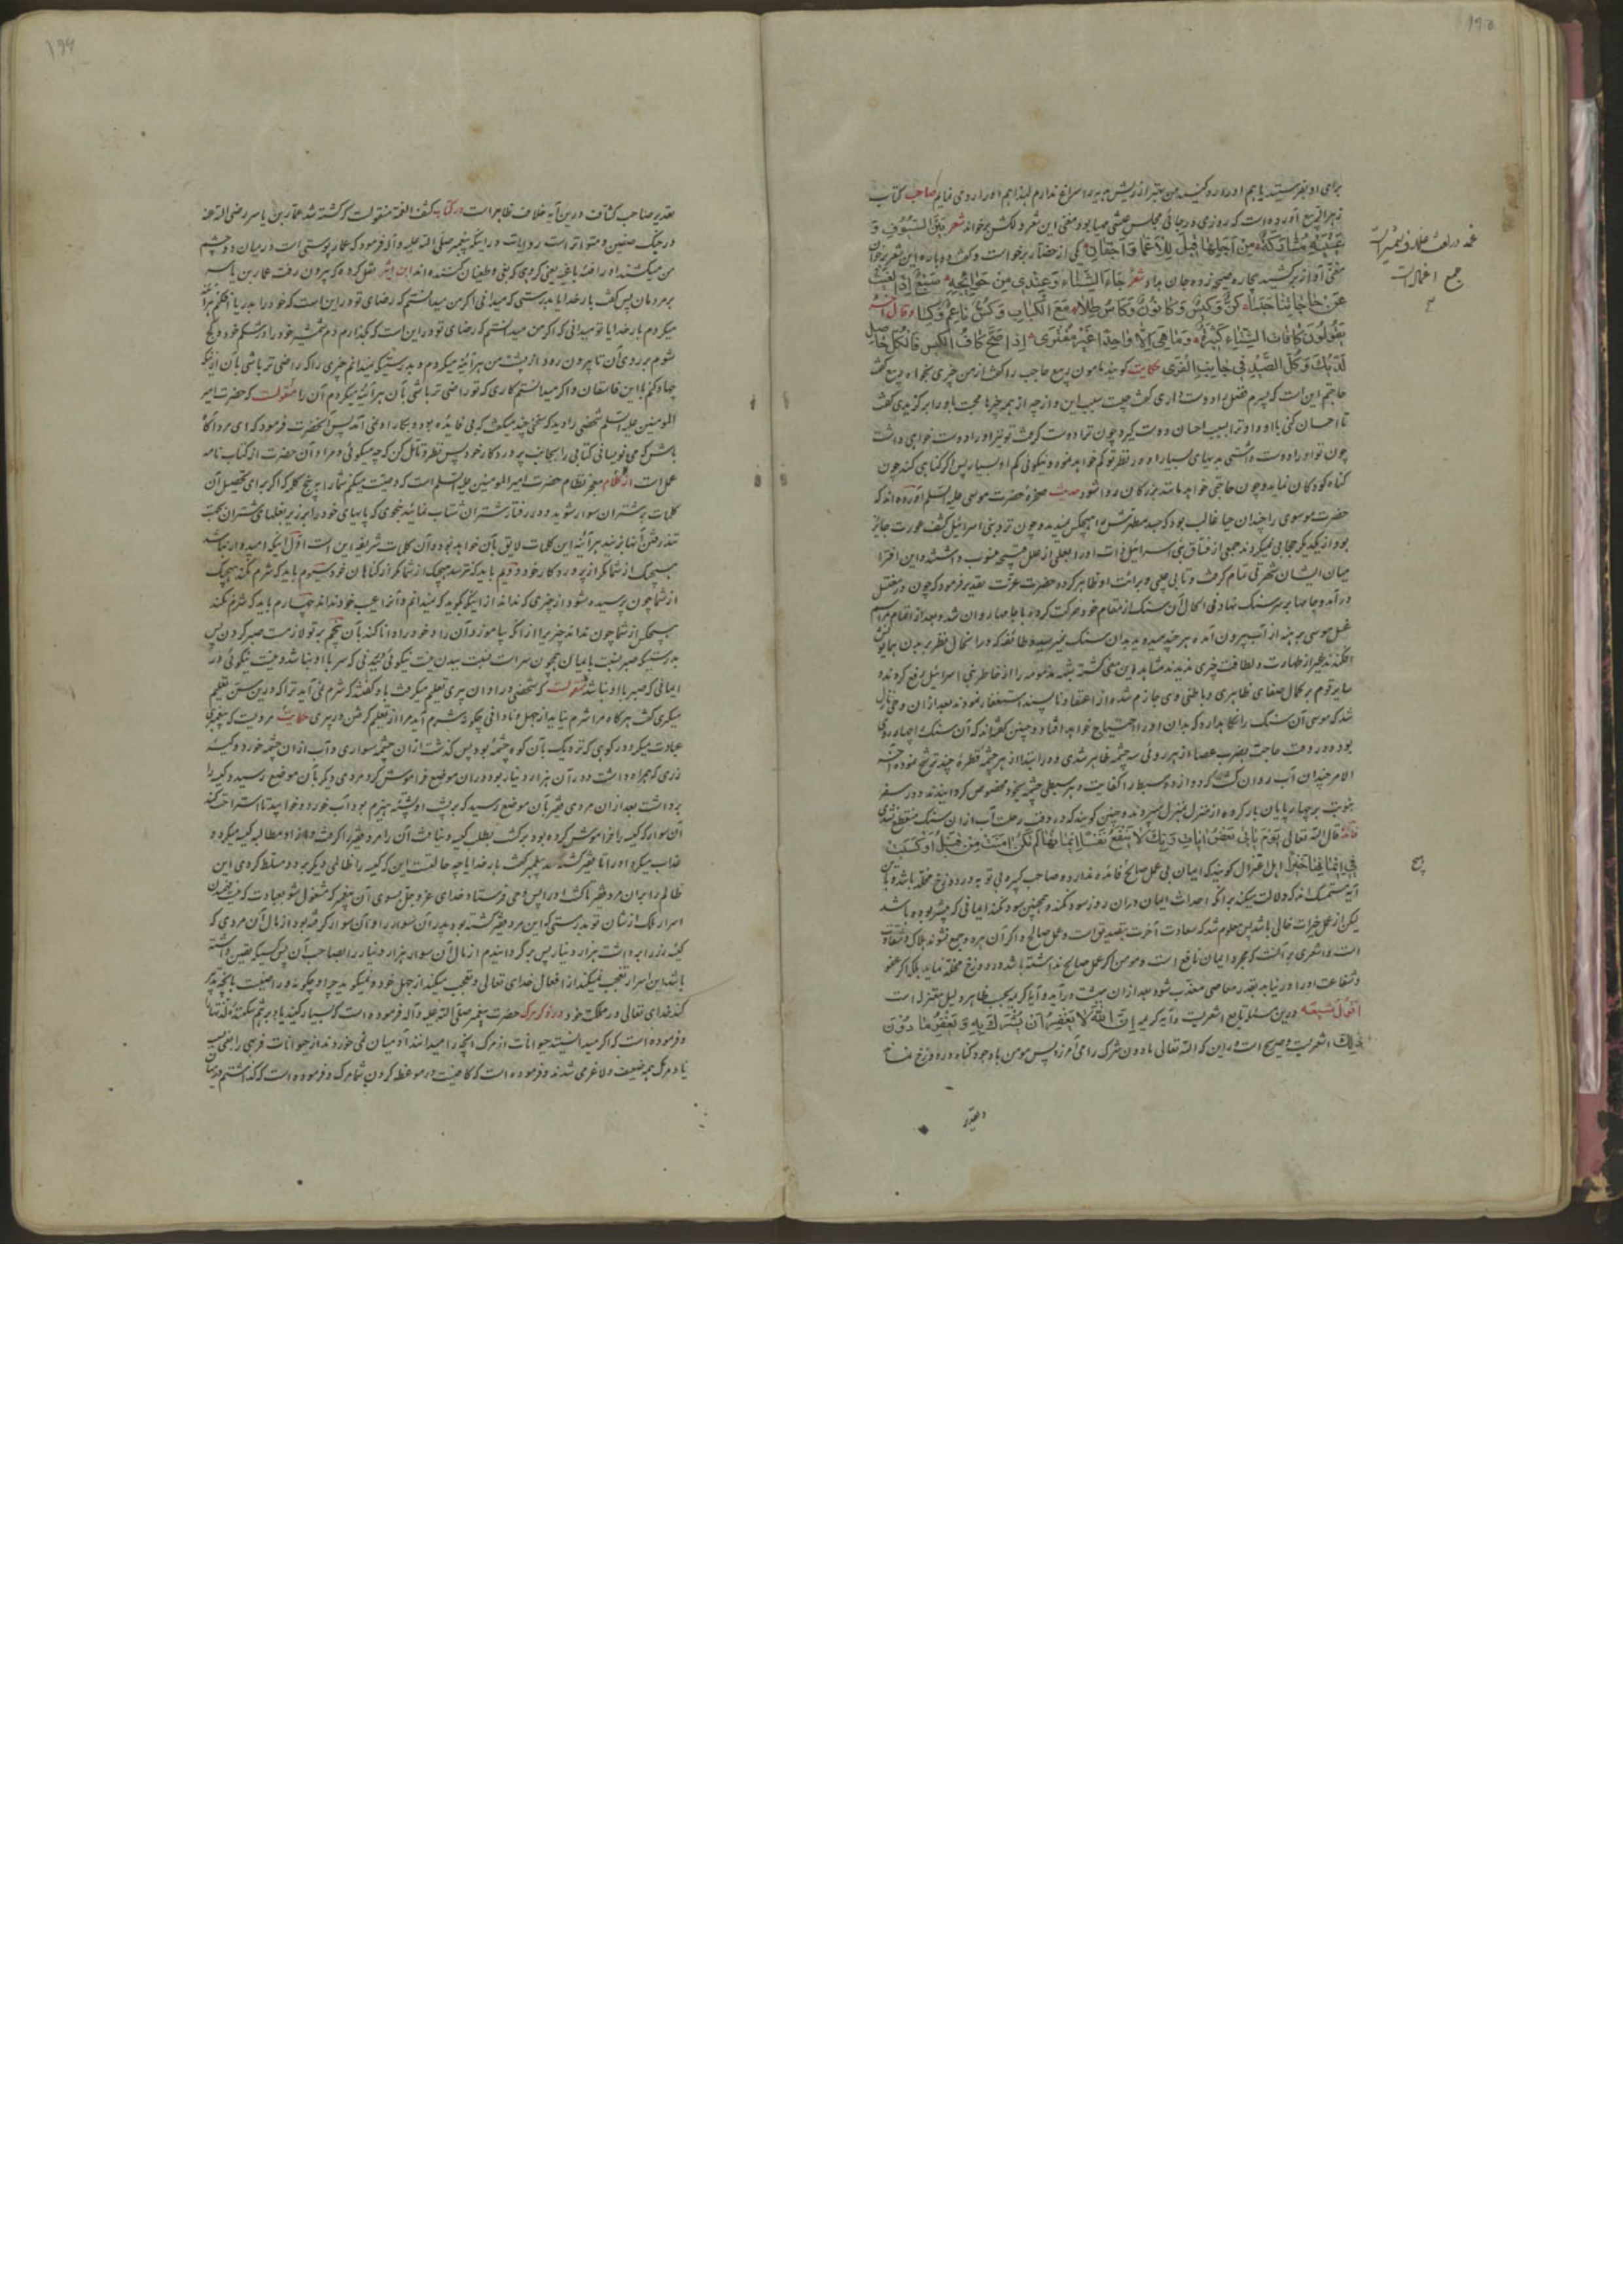 ۱۹۵
برای او بفرستید یا هم او را روانه کنید من بهتر از ریش جزیه را سراغ ندارم لهذا هم او را روی نمایم صاحب کتاب
زهر الربیع آورده است که روزی در جائی مجلس عیشی مهیا بود مغنی این شعر دلکش برخواند شعر بین السیوف و
عینیه مشارکة من اجلها قیل للاغماد اجفان یکی از حضار برخواست و گفت دوباره این شعر بخوان
مغنی آواز برکشید بیچاره صیحه زد و جان بداد شعر جاء الشتاء وعندی من حوائجه سبع اذا الغیث
عن حاجاتنا حبسا کن وکیس وکانون وکاس طلا مع الکباب وکس ناعم وکسا وقال آخر
یقولون کافات الشتاء کثیرة وما هی الا واحدا غیر مفتری اذا صح کاف الکیس فالکل حاصل
لدیک وکل الصید فی جانب الفری حکایت گویند مامون ربیع حاجب را گفت از من چیزی بخواه ربیع گفت
حاجتم این است که پسرم فضل را دوست داری گفت چیست سبب این و از چه از همه چیزها محبت باو را برگزیدی گفت
تا احسان کنی باو و او ترا بسبب احسان دوست گیرد و چون ترا دوست گرفت تو نیز او را دوست خواهی داشت
چون تو او را دوست داشتی بدیهای بسیار او در نظر تو کم خواهد نمود و نیکوئی کم او بسیار پس اگر گناهی کند چون
گناه کودکان نماید و چون حاجتی خواهد مانند بزرگان روا شود حدیث صخره حضرت موسی علیه السلم آورده اند که
حضرت موسی را چندان حیا غالب بود که جسد مطهرش را هیچکس ندیده و چون نزد بنی اسرائیل کشف عورت جایز
بود و از یکدیگر حجابی نمیکردند جمعی از فساق بنی اسرائیل ذات او را به بعضی از علل قبیحه منسوب داشتند و این افترا
میان ایشان شهرتی تمام گرفت و تا بی عیبی و برائت او ظاهر گردد حضرت عزت تقدیر فرمود که چون در مغتسل
در آمد و جامها بر سر سنک نهاد فی الحال آن سنک از مقام خود حرکت کرده با جامها روان شد و بعد از اتمام مراسم
غسل موسی برهنه از آب بیرون آمده هر چند میدوید بدان سنک نمیرسید و طائفه که در آنحال نظر بر بدن همایونش
افکندند بغیر از طهارت و لطافت چیزی ندیدند مشاهده این معنی گشته شبهه مذمومه را از خاطر بنی اسرائیل رفع کردند و
سایر قوم بر کمال صفای ظاهری و باطنی وی جازم شده از اعتقاد ناپسند استغفار نمودند بعد از آن وحی نازل
شد که موسی آن سنک را نگاه بدارد که بدان او را احتیاج خواهد افتاد و چنین گفته اند که آن سنک را چهار روی
بود و در وقت حاجت بضرب عصا از هر روئی سه چشمه ظاهر شدی و در ابتدا از هر چشمه قطره چند ترشح نموده آخر
الامر چندان آب روان گشت که دوازده سبط را کفایت و هر سبطی چشمه بخود مخصوص گردانیدند و در سفر
بنوبت بر چهارپایان بار کرده از منزل بمنزل میبردند و چنین گویند که در وقت رحلت آب از آن سنک منقطع شدی
فائدة قال الله تعالی یوم یاتی بعض ایات ربک لا ینفع نفسا ایمانها لم تکن امنت من قبل او کسبت
فی ایمانها خیرا اهل اعتزال گویند که ایمان بی عمل صالح فائده ندارد و صاحب کبیره بی توبه در دوزخ مخلد باشد و باین
آیه متمسک اند که دلالت میکند بر آنکه احداث ایمان در آن روز سود نکند و همچنین سود نکند ایمانی که پیشتر بوده باشد
لیکن از عمل خیرات خالی باشد پس معلوم شد که سعادت آخرت بتصدیق است و عمل صالح و اگر آن هر دو جمع نشوند هلاک و شقاوت
است و اشعری بر آنست که مجرد ایمان نافع است و مومن اگر عمل صالح نداشته باشد در دوزخ مخلد نماند بلکه اگر عفو
و شفاعت او را در نیابد بقدر معاصی معذب شود بعد از آن ببهشت در آید و آیة کریمه بحسب ظاهر دلیل معتزله است
اقول شیعه درین مسئله تابع اشعریست و آیه کریمه ان الله لا یغفر ان یشرک به ویغفر ما دون
ذلک اشعریست و صریح است در این که الله تعالی مادون شرک را می آمرزد پس مومن با وجود گناه در دوزخ مخلد
جمع اغماد است
۱۹۶
بقدیر صاحب کشاف درین آیه خلاف ظاهر است در کتاب کشف الغمه منقولست که کشته شد عمار بن یاسر رضی الله عنه
در جنگ صفین و متواتر است روایات در اینکه پیغمبر صلی الله علیه و آله فرمود که عمار پوستی است در میان دو چشم
من میکشند او را فئه باغیه یعنی گروهی که بغی و طغیان کننده اند ابن اثیر نقل کرده که بیرون رفت عمار بن یاسر
بر مردمان پس گفت بار خدایا بدرستی که میدانی اگر من میدانستم که رضای تو در این است که خود را بدریا افکنم هرآینه
میکردم بار خدایا تو میدانی که اگر من میدانستم که رضای تو در این است که بگذارم دم شمشیر خود را در شکم خود و کج
شوم بر روی آن تا بیرون رود از پشت من هرآئینه میکردم و بدرستیکه نمیدانم چیزی را که راضی تر باشی بآن از اینکه
جهاد کنم با این فاسقان و اگر میدانستم کاری که تو راضی تر باشی بآن هرآئینه میکردم آن را منقولست که حضرت امیر
المومنین علیه السلم شخصی را دید که سخنی چند میگفت که بی فایده بود و بکار او نمی آمد پس آنحضرت فرمود که ای مرد آگاه
باش که می نویسانی کتابی را بجانب پروردگار خود پس نظر و تامل کن که چه میگوئی و مراد آن حضرت از کتاب نامه
عمل است از کلام معجز نظام حضرت امیر المومنین علیه السلم است که وصیت میکنم شما را به پنج کلمه که اگر برای تحصیل آن
کلمات بر شتران سوار شوید و در رفتار شتران شتاب نمائید بنحوی که پایهای خود را بر زیر بغلهای شتران بجهت
تند رفتن آنها بزنید هرآئینه این کلمات لایق بآن خواهد بود و آن کلمات شریفه این است اول اینکه امیدوار نباشد
هیچیک از شما مگر از پروردگار خود دویم باید که نترسد هیچیک از شما مگر از گناهان خود سیوم باید که شرم نکند هیچیک
از شما چون پرسیده شود از چیزی که نداند از اینکه بگوید که نمیدانم و آنرا عیب خود نداند چهارم باید که شرم نکند
هیچیک از شما چون نداند چیزیرا از آنکه بیاموزد آن را و خود را دانا کند بآن پنجم بر تو لازمست صبر کردن پس
بدرستیکه صبر نسبت بایمان همچون سر است نسبت ببدن نیست نیکوئی در بدنی که سر با او نباشد و نیست نیکوئی در
ایمانی که صبر با او نباشد منقولست که شخصی در اوان پیری تعلیم میگرفت باو گفتند که شرم نمی آید ترا که درین سن تعلیم
میگیری گفت هر گاه مرا شرم نیاید از جهل و نادانی چگونه شرم آید مرا از تعلیم گرفتن در پیری حکایت مرویست که پیغمبری
عبادت میکرد در کوهی که نزدیک بآن کوه چشمه بود پس گذشت از آن چشمه سواری و آب از آن چشمه خورد و کیسه
زری که همراه داشت و در آن هزار دینار بود در آن موضع فراموش کرد مردی دیگر بآن موضع رسید و کیسه را
برداشت بعد از آن مردی فقیر بآن موضع رسید که بر پشت او پشته هیزم بود آب خورد و خوابید تا استراحت کند
آن سوار که کیسه را فراموش کرده بود برگشت بطلب کیسه و نیافت آن را مرد فقیر را گرفت و از او مطالبه کیسه میکرد و
عذاب میکرد او را تا فقیر کشته شد پیغمبر گفت بار خدایا چه حالست این که کیسه را ظالمی دیگر برد و مسلط کردی این
ظالم را بر آن مرد فقیر تا کشت او را پس وحی فرستاد خدای عز و جل بسوی آن پیغمبر که مشغول شو بعبادت که فهمیدن
اسرار ملک از شان تو نیست بدرستی که این مرد فقیر کشته بود پدر آن سوار را و آن سوار گرفته بود از مال آن مردی که
کیسه زر را برداشت هزار دینار پس برگردانیدم از مال آن سوار هزار دینار را بصاحب آن پس کسیکه یقین داشته
باشد این اسرار تعجب نمیکند از افعال خدای تعالی و تعجب میکند از جهل خود و نمیگوید چرا و چگونه و راضیست بآنچه تدبیر
کند خدای تعالی در مملکت خود در ذکر مرگ حضرت پیغمبر صلی الله علیه و آله فرموده است که بسیار کنید یاد برهم شکننده لذتها را
و فرموده است که اگر میدانستند حیوانات از مرگ آنچه را میدانند آدمیان نمی خوردند از حیوانات فربهی را یعنی بسبب
یاد مرگ همه ضعیف و لاغر می شدند و فرموده است که کافیست در موعظه کردن شما مرگ و فرموده است که گذاشتم در میان